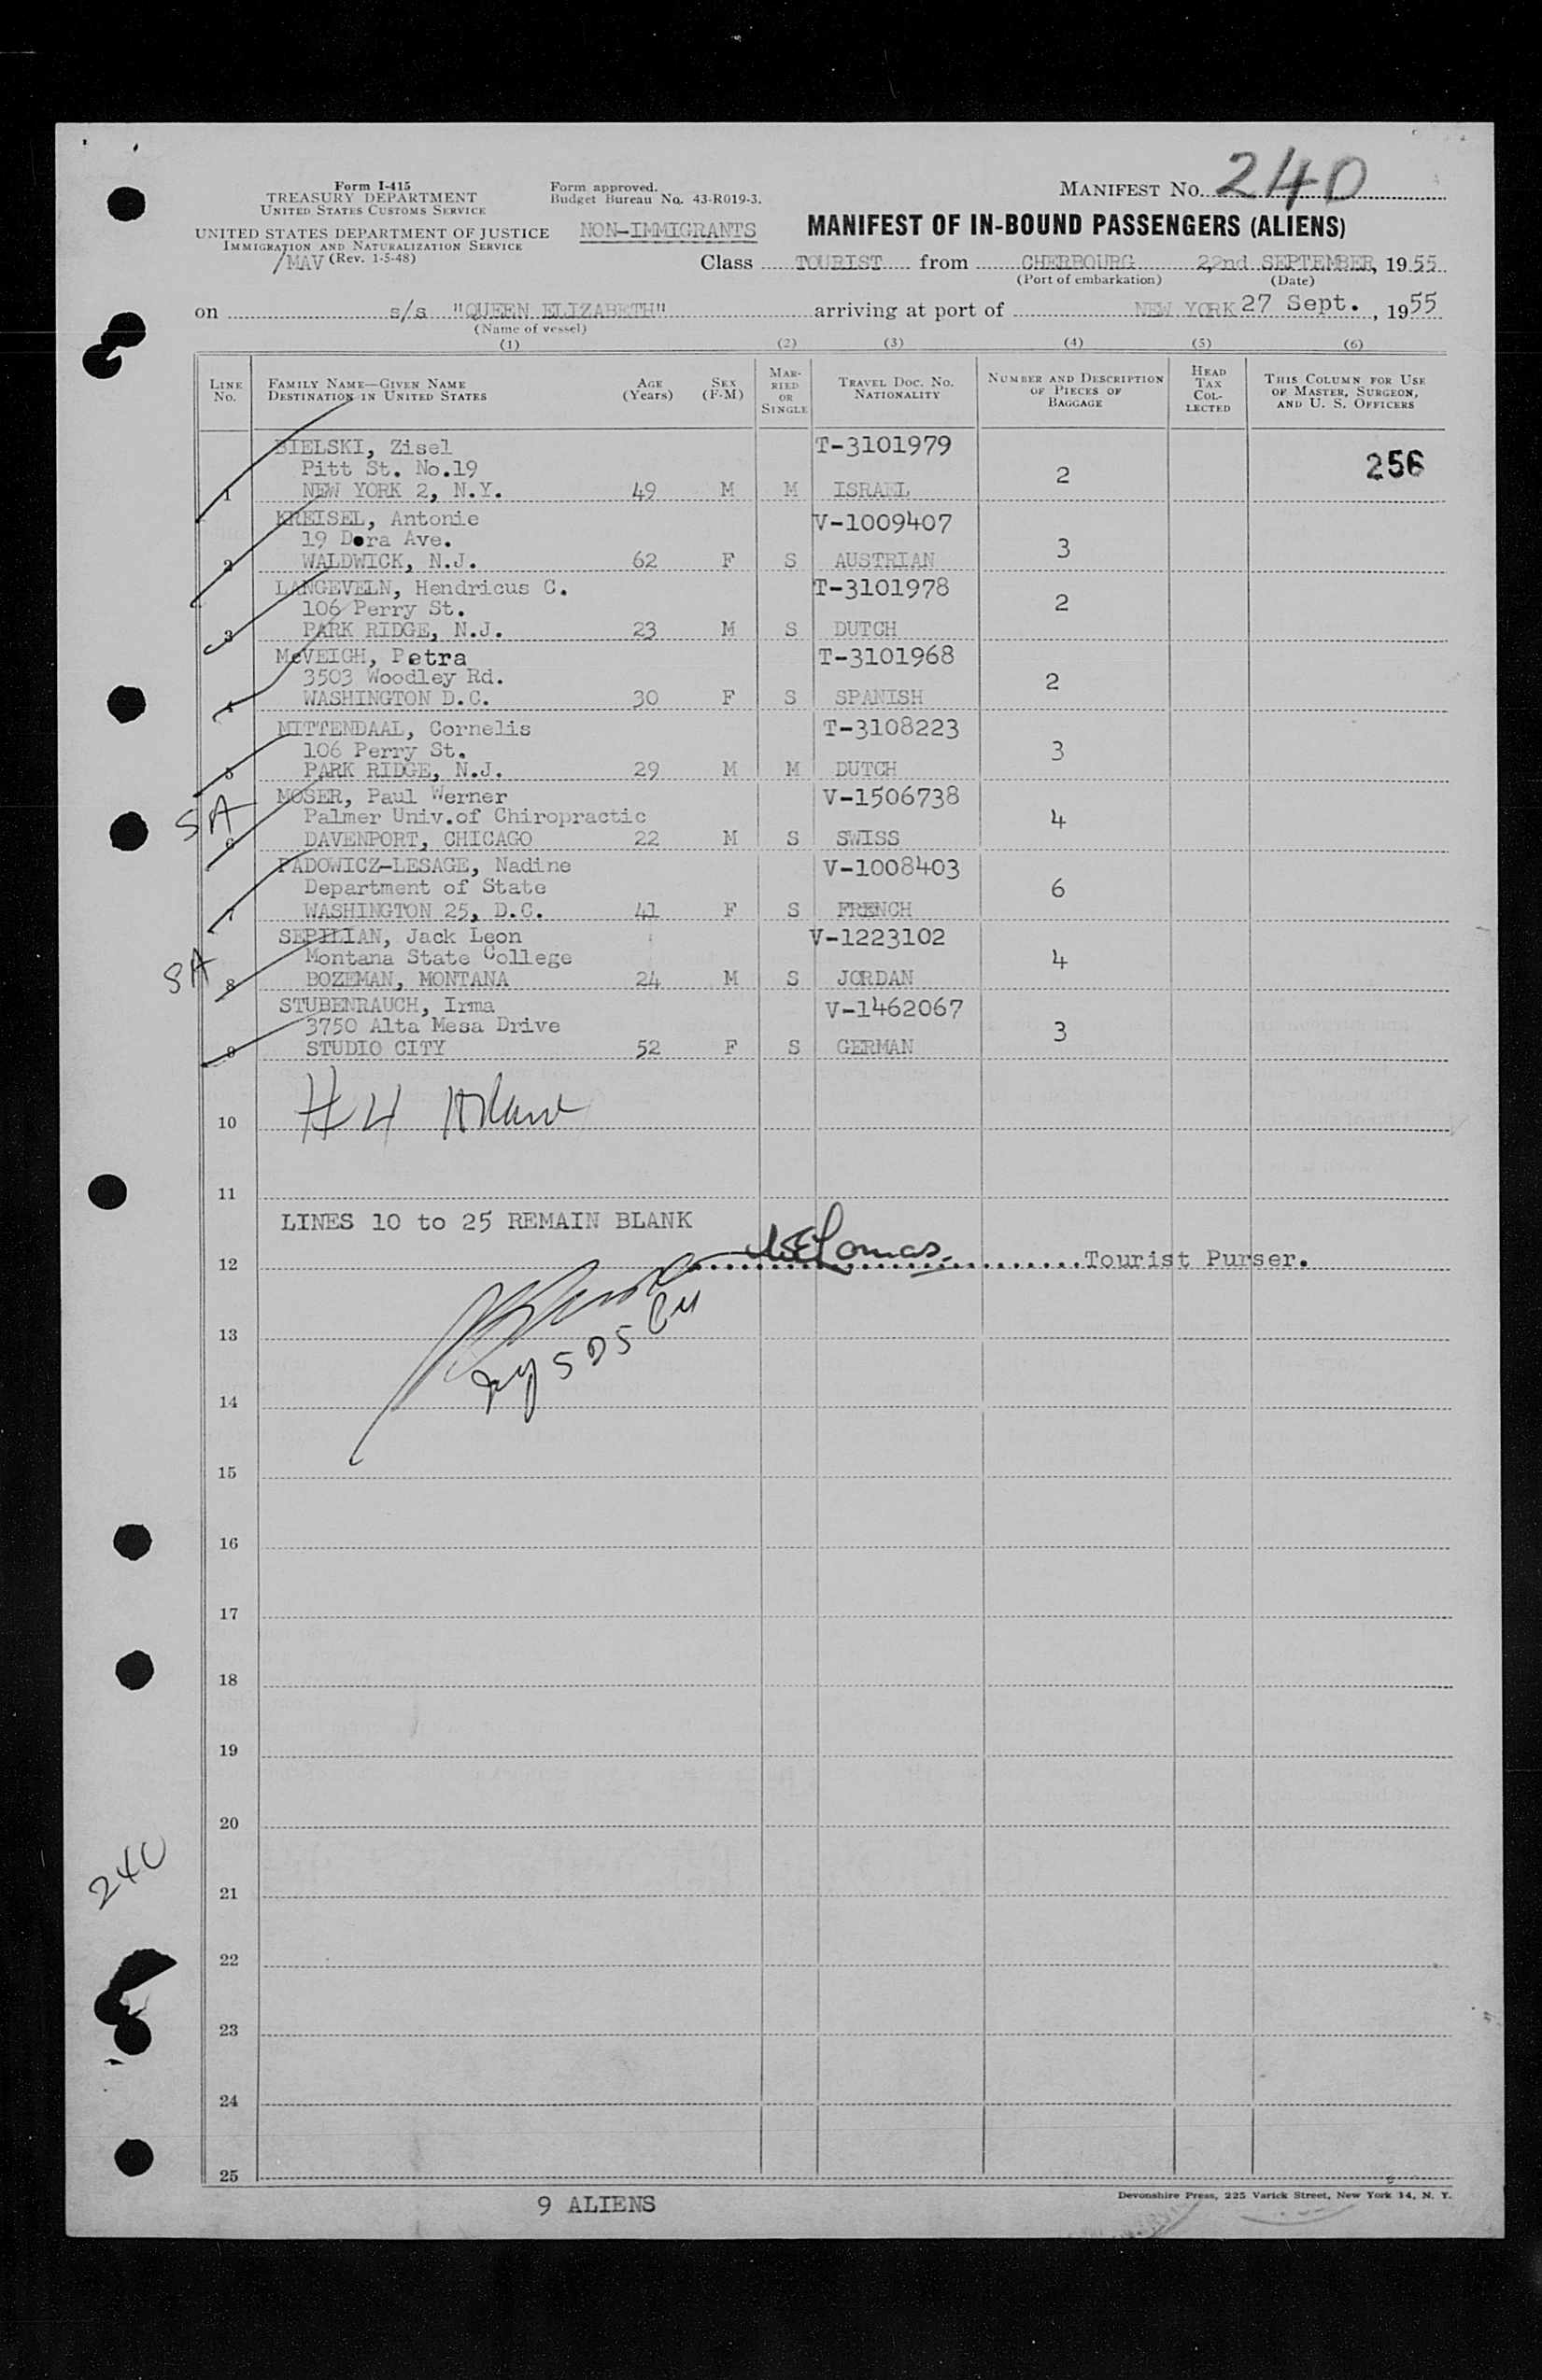 Form I-415
TREASURY DEPARTMENT
UNITED STATES CUSTOMS SERVICE
UNITED STATES DEPARTMENT OF JUSTICE
IMMIGRATION AND NATURALIZATION SERVICE
/MAV (Rev. 1-5-48)
Form approved.
Budget Bureau No. 43-R019-3.
NON-IMMIGRANTS
MANIFEST NO. 240
MANIFEST OF IN-BOUND PASSENGERS (ALIENS)
Class TOURIST from CHERBOURG 22nd SEPTEMBER, 1955
(Port of embarkation) (Date)
on s/s "QUEEN ELIZABETH" arriving at port of NEW YORK 27 Sept., 1955
(Name of vessel)
(1) (2) (3) (4) (5) (6)
LINE NO. FAMILY NAME—GIVEN NAME DESTINATION IN UNITED STATES AGE (Years) SEX (F-M) MARRIED OR SINGLE TRAVEL DOC. NO. NATIONALITY NUMBER AND DESCRIPTION OF PIECES OF BAGGAGE HEAD TAX COLLECTED THIS COLUMN FOR USE OF MASTER, SURGEON, AND U. S. OFFICERS
BIELSKI, Zisel T-3101979
Pitt St. No.19 2 256
1 NEW YORK 2, N.Y. 49 M M ISRAEL
KREISEL, Antonie V-1009407
19 Dora Ave. 3
2 WALDWICK, N.J. 62 F S AUSTRIAN
LANGEVELN, Hendricus C. T-3101978
106 Perry St. 2
3 PARK RIDGE, N.J. 23 M S DUTCH
McVEIGH, Petra T-3101968
3503 Woodley Rd. 2
4 WASHINGTON D.C. 30 F S SPANISH
MITTENDAAL, Cornelis T-3108223
106 Perry St. 3
5 PARK RIDGE, N.J. 29 M M DUTCH
SA MOSER, Paul Werner V-1506738
Palmer Univ.of Chiropractic 4
6 DAVENPORT, CHICAGO 22 M S SWISS
PADOWICZ-LESAGE, Nadine V-1008403
Department of State 6
7 WASHINGTON 25, D.C. 41 F S FRENCH
SEPILIAN, Jack Leon V-1223102
SA Montana State College 4
8 BOZEMAN, MONTANA 24 M S JORDAN
STUBENRAUCH, Irma V-1462067
3750 Alta Mesa Drive 3
9 STUDIO CITY 52 F S GERMAN
10 #4
11
LINES 10 to 25 REMAIN BLANK
12 Lomas Tourist Purser.
13
14
15
16
17
18
19
20
240
21
22
23
24
25
9 ALIENS
Devonshire Press, 225 Varick Street, New York 14, N. Y.